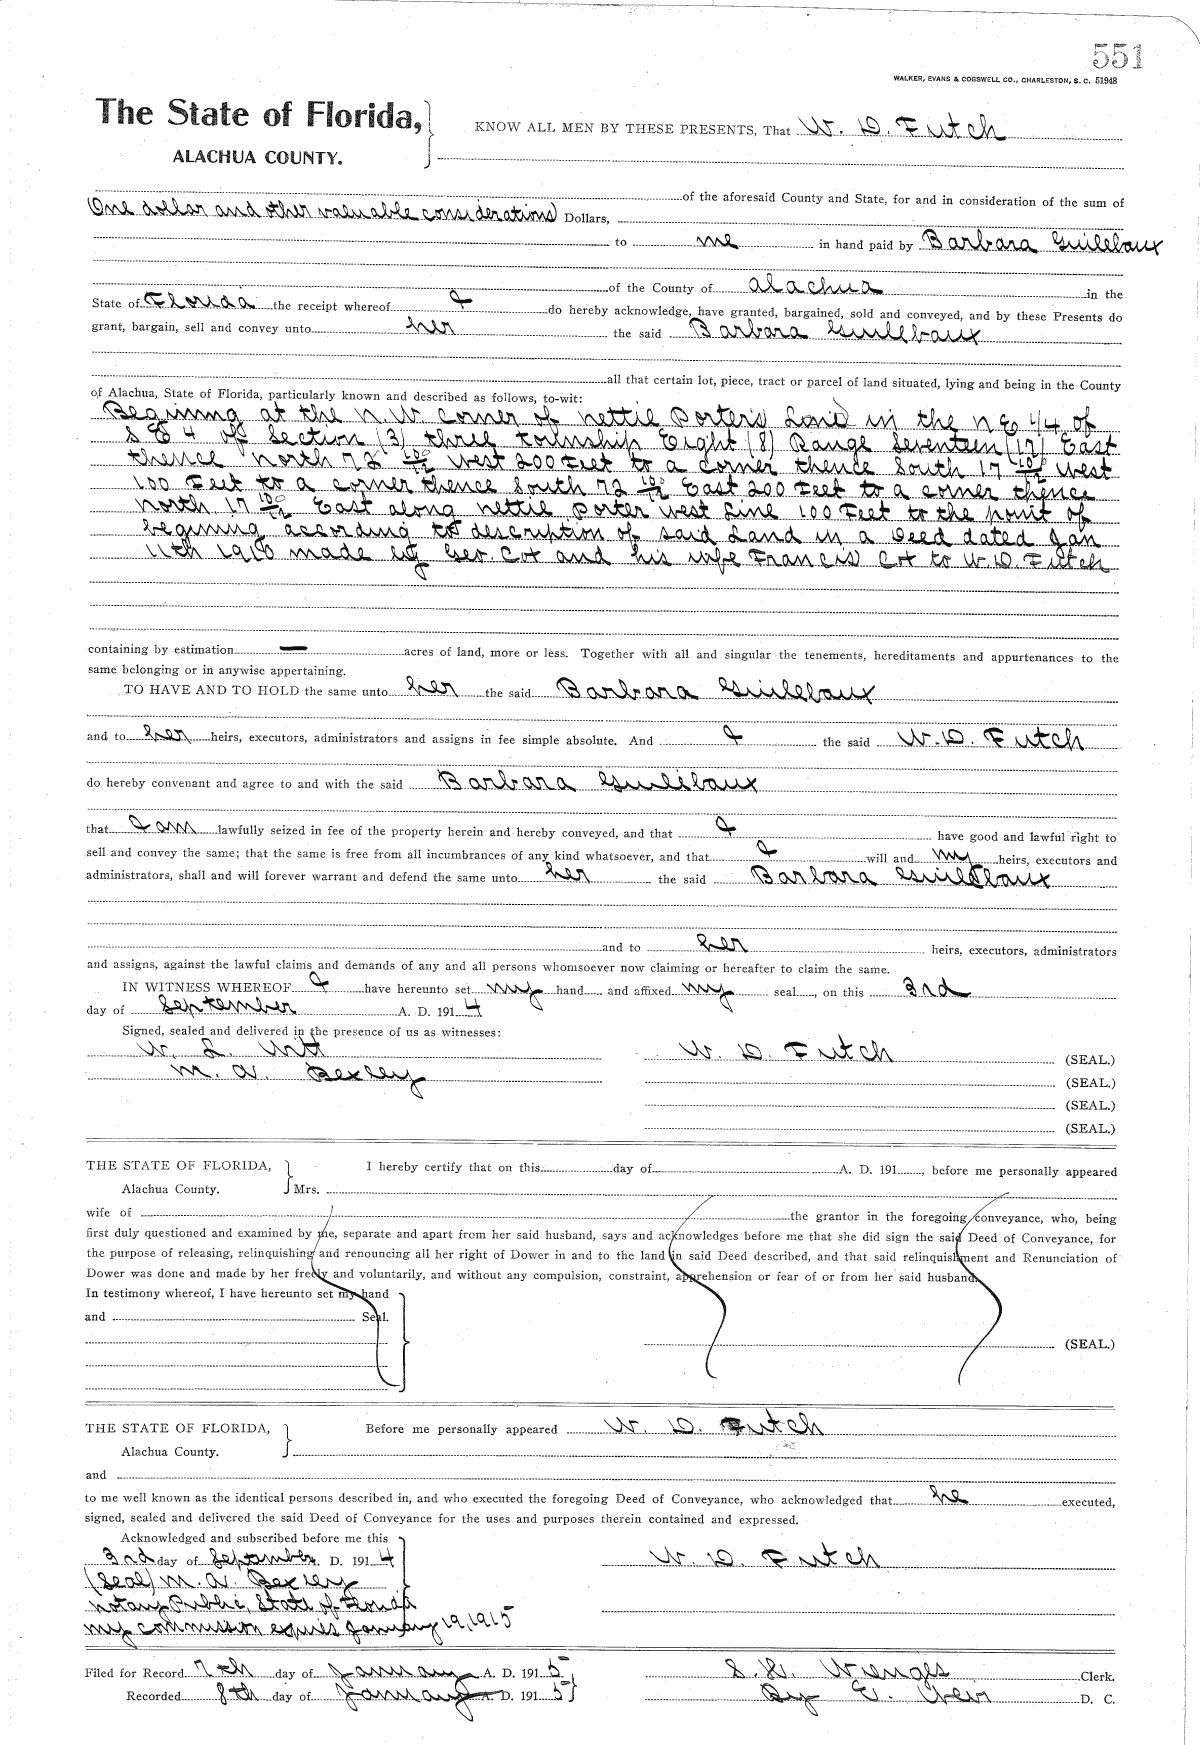 551
WALKER, EVANS & COGSWELL CO., CHARLESTON, S. C. 51948
The State of Florida,
KNOW ALL MEN BY THESE PRESENTS, That W. D. Futch
ALACHUA COUNTY.
of the aforesaid County and State, for and in consideration of the sum of
One dollar and other valuable considerations Dollars,
to me in hand paid by Barbara Guilebaux
of the County of Alachua in the
State of Florida the receipt whereof I do hereby acknowledge, have granted, bargained, sold and conveyed, and by these Presents do
grant, bargain, sell and convey unto her the said Barbara Guilebaux
all that certain lot, piece, tract or parcel of land situated, lying and being in the County
of Alachua, State of Florida, particularly known and described as follows, to-wit:
Beginning at the N.W. corner of Nettie Porter's Land in the N E 1/4 of
S E 4 of Section (3) three Township Eight (8) Range Seventeen (17) East
thence North 72 West 200 Feet to a corner thence South 17 West
100 Feet to a corner thence South 72 East 200 Feet to a corner thence
North 17 East along Nettie Porter West Line 100 Feet to the point of
begining according to description of said Land in a Deed dated Jan
11th made by Geo. Cox and his wife Francis Cox to W. D. Futch
containing by estimation — acres of land, more or less. Together with all and singular the tenements, hereditaments and appurtenances to the
same belonging or in anywise appertaining.
TO HAVE AND TO HOLD the same unto her the said Barbara Guilebaux
and to her heirs, executors, administrators and assigns in fee simple absolute. And I the said W. D. Futch
do hereby convenant and agree to and with the said Barbara Guilebaux
that I am lawfully seized in fee of the property herein and hereby conveyed, and that I have good and lawful right to
sell and convey the same; that the same is free from all incumbrances of any kind whatsoever, and that I will and my heirs, executors and
administrators, shall and will forever warrant and defend the same unto her the said Barbara Guilebaux
and to her heirs, executors, administrators
and assigns, against the lawful claims and demands of any and all persons whomsoever now claiming or hereafter to claim the same.
IN WITNESS WHEREOF I have hereunto set my hand and affixed my seal, on this 3rd
day of September A. D. 1914
Signed, sealed and delivered in the presence of us as witnesses:
W. L. W. D. Futch (SEAL.)
M. A. Bexley (SEAL.)
(SEAL.)
(SEAL.)
THE STATE OF FLORIDA, I hereby certify that on this day of A. D. 191 , before me personally appeared
Alachua County. Mrs.
wife of the grantor in the foregoing conveyance, who, being
first duly questioned and examined by me, separate and apart from her said husband, says and acknowledges before me that she did sign the said Deed of Conveyance, for
the purpose of releasing, relinquishing and renouncing all her right of Dower in and to the land in said Deed described, and that said relinquishment and Renunciation of
Dower was done and made by her freely and voluntarily, and without any compulsion, constraint, apprehension or fear of or from her said husband.
In testimony whereof, I have hereunto set my hand
and Seal.
(SEAL.)
THE STATE OF FLORIDA, Before me personally appeared W. D. Futch
Alachua County.
and
to me well known as the identical persons described in, and who executed the foregoing Deed of Conveyance, who acknowledged that he executed,
signed, sealed and delivered the said Deed of Conveyance for the uses and purposes therein contained and expressed.
Acknowledged and subscribed before me this
3rd day of September A. D. 1914 W. D. Futch
(Seal) M. A. Bexley
Notary Public, State of Florida
my commission expires January 19, 1915
Filed for Record 7th day of January A. D. 1915 S. H. Wienges Clerk.
Recorded 8th day of January A. D. 1915 By E. D. C.